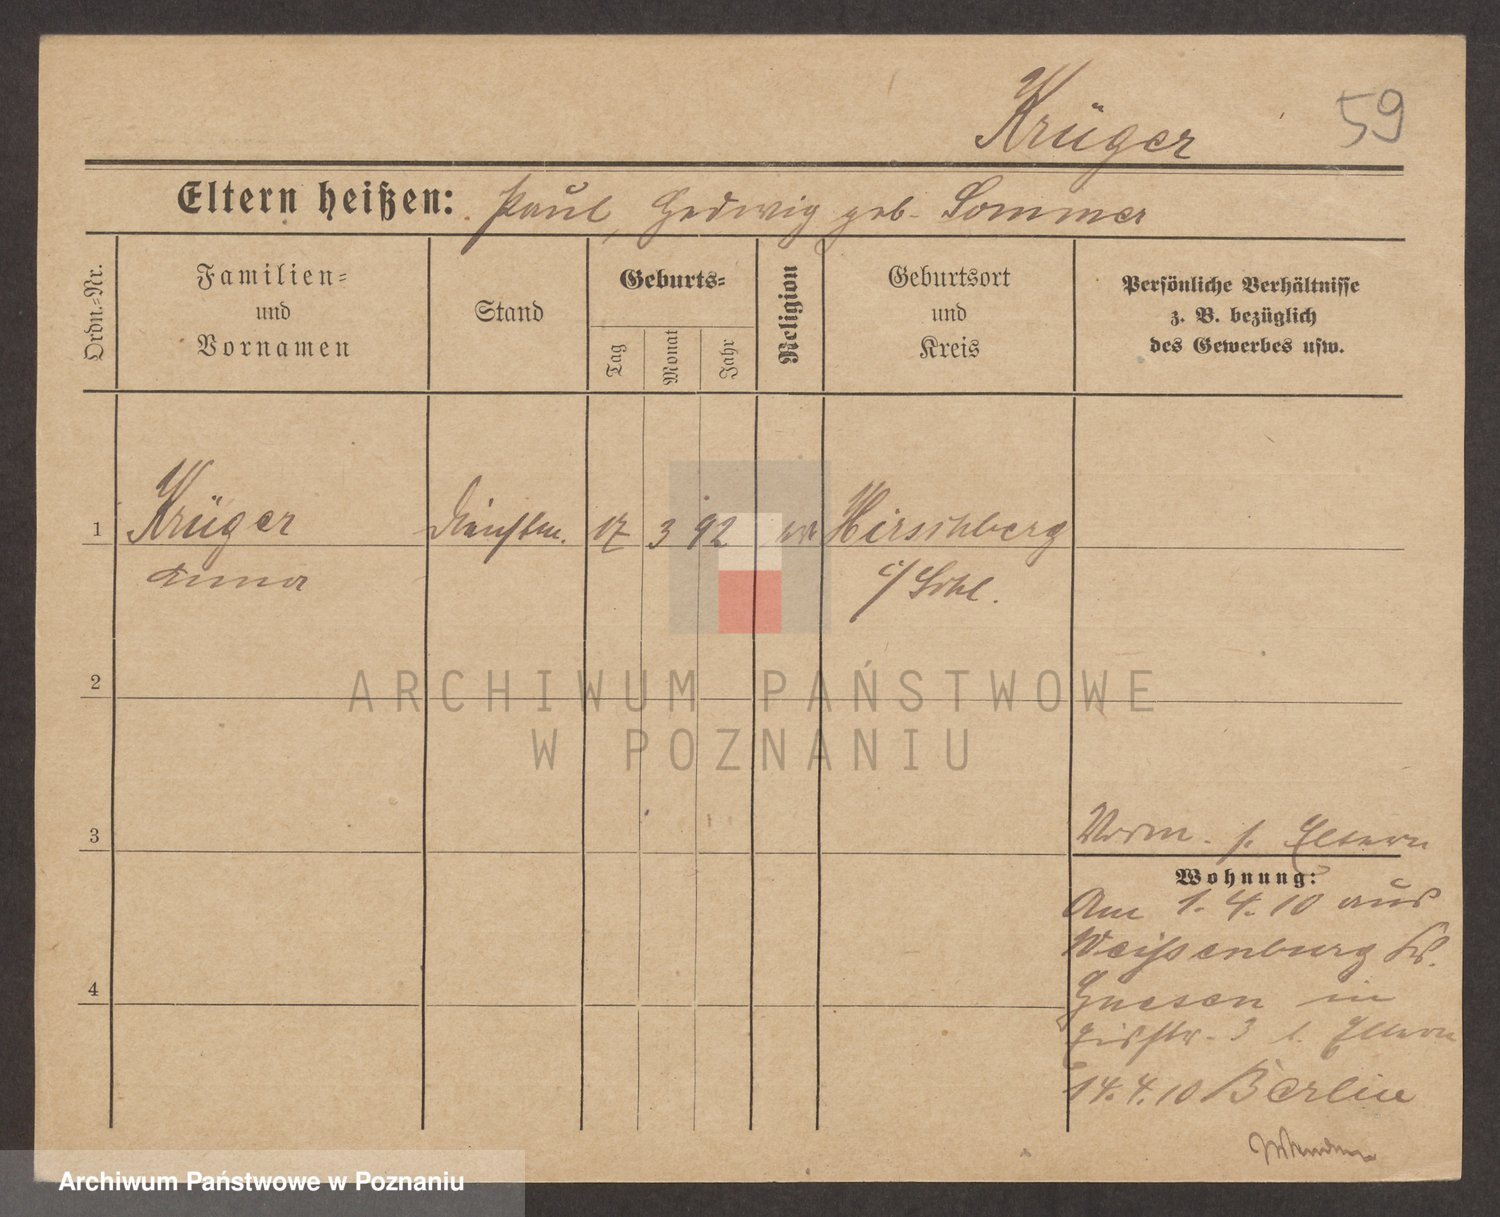 Krüger
59
Eltern heißen: Paul, Hedwig geb. Sommer
Ordn.-Nr.
Familien-
und
Vornamen
Stand
Geburts-
Tag
Monat
Jahr
Religion
Geburtsort
und
Kreis
Persönliche Verhältnisse
z. B. bezüglich
des Gewerbes usw.
1 Krüger Dienstm. 17 3 92 Hirschberg
Anna i/Schl.
2
ARCHIWUM PAŃSTWOWE
W POZNANIU
3
Vorm. s. Eltern
Wohnung:
Am 1.4.10 aus
Weißenburg Kr.
4
Gnesen in
3 b. Eltern
14.4.10 Berlin
Wenden
Archiwum Państwowe w Poznaniu